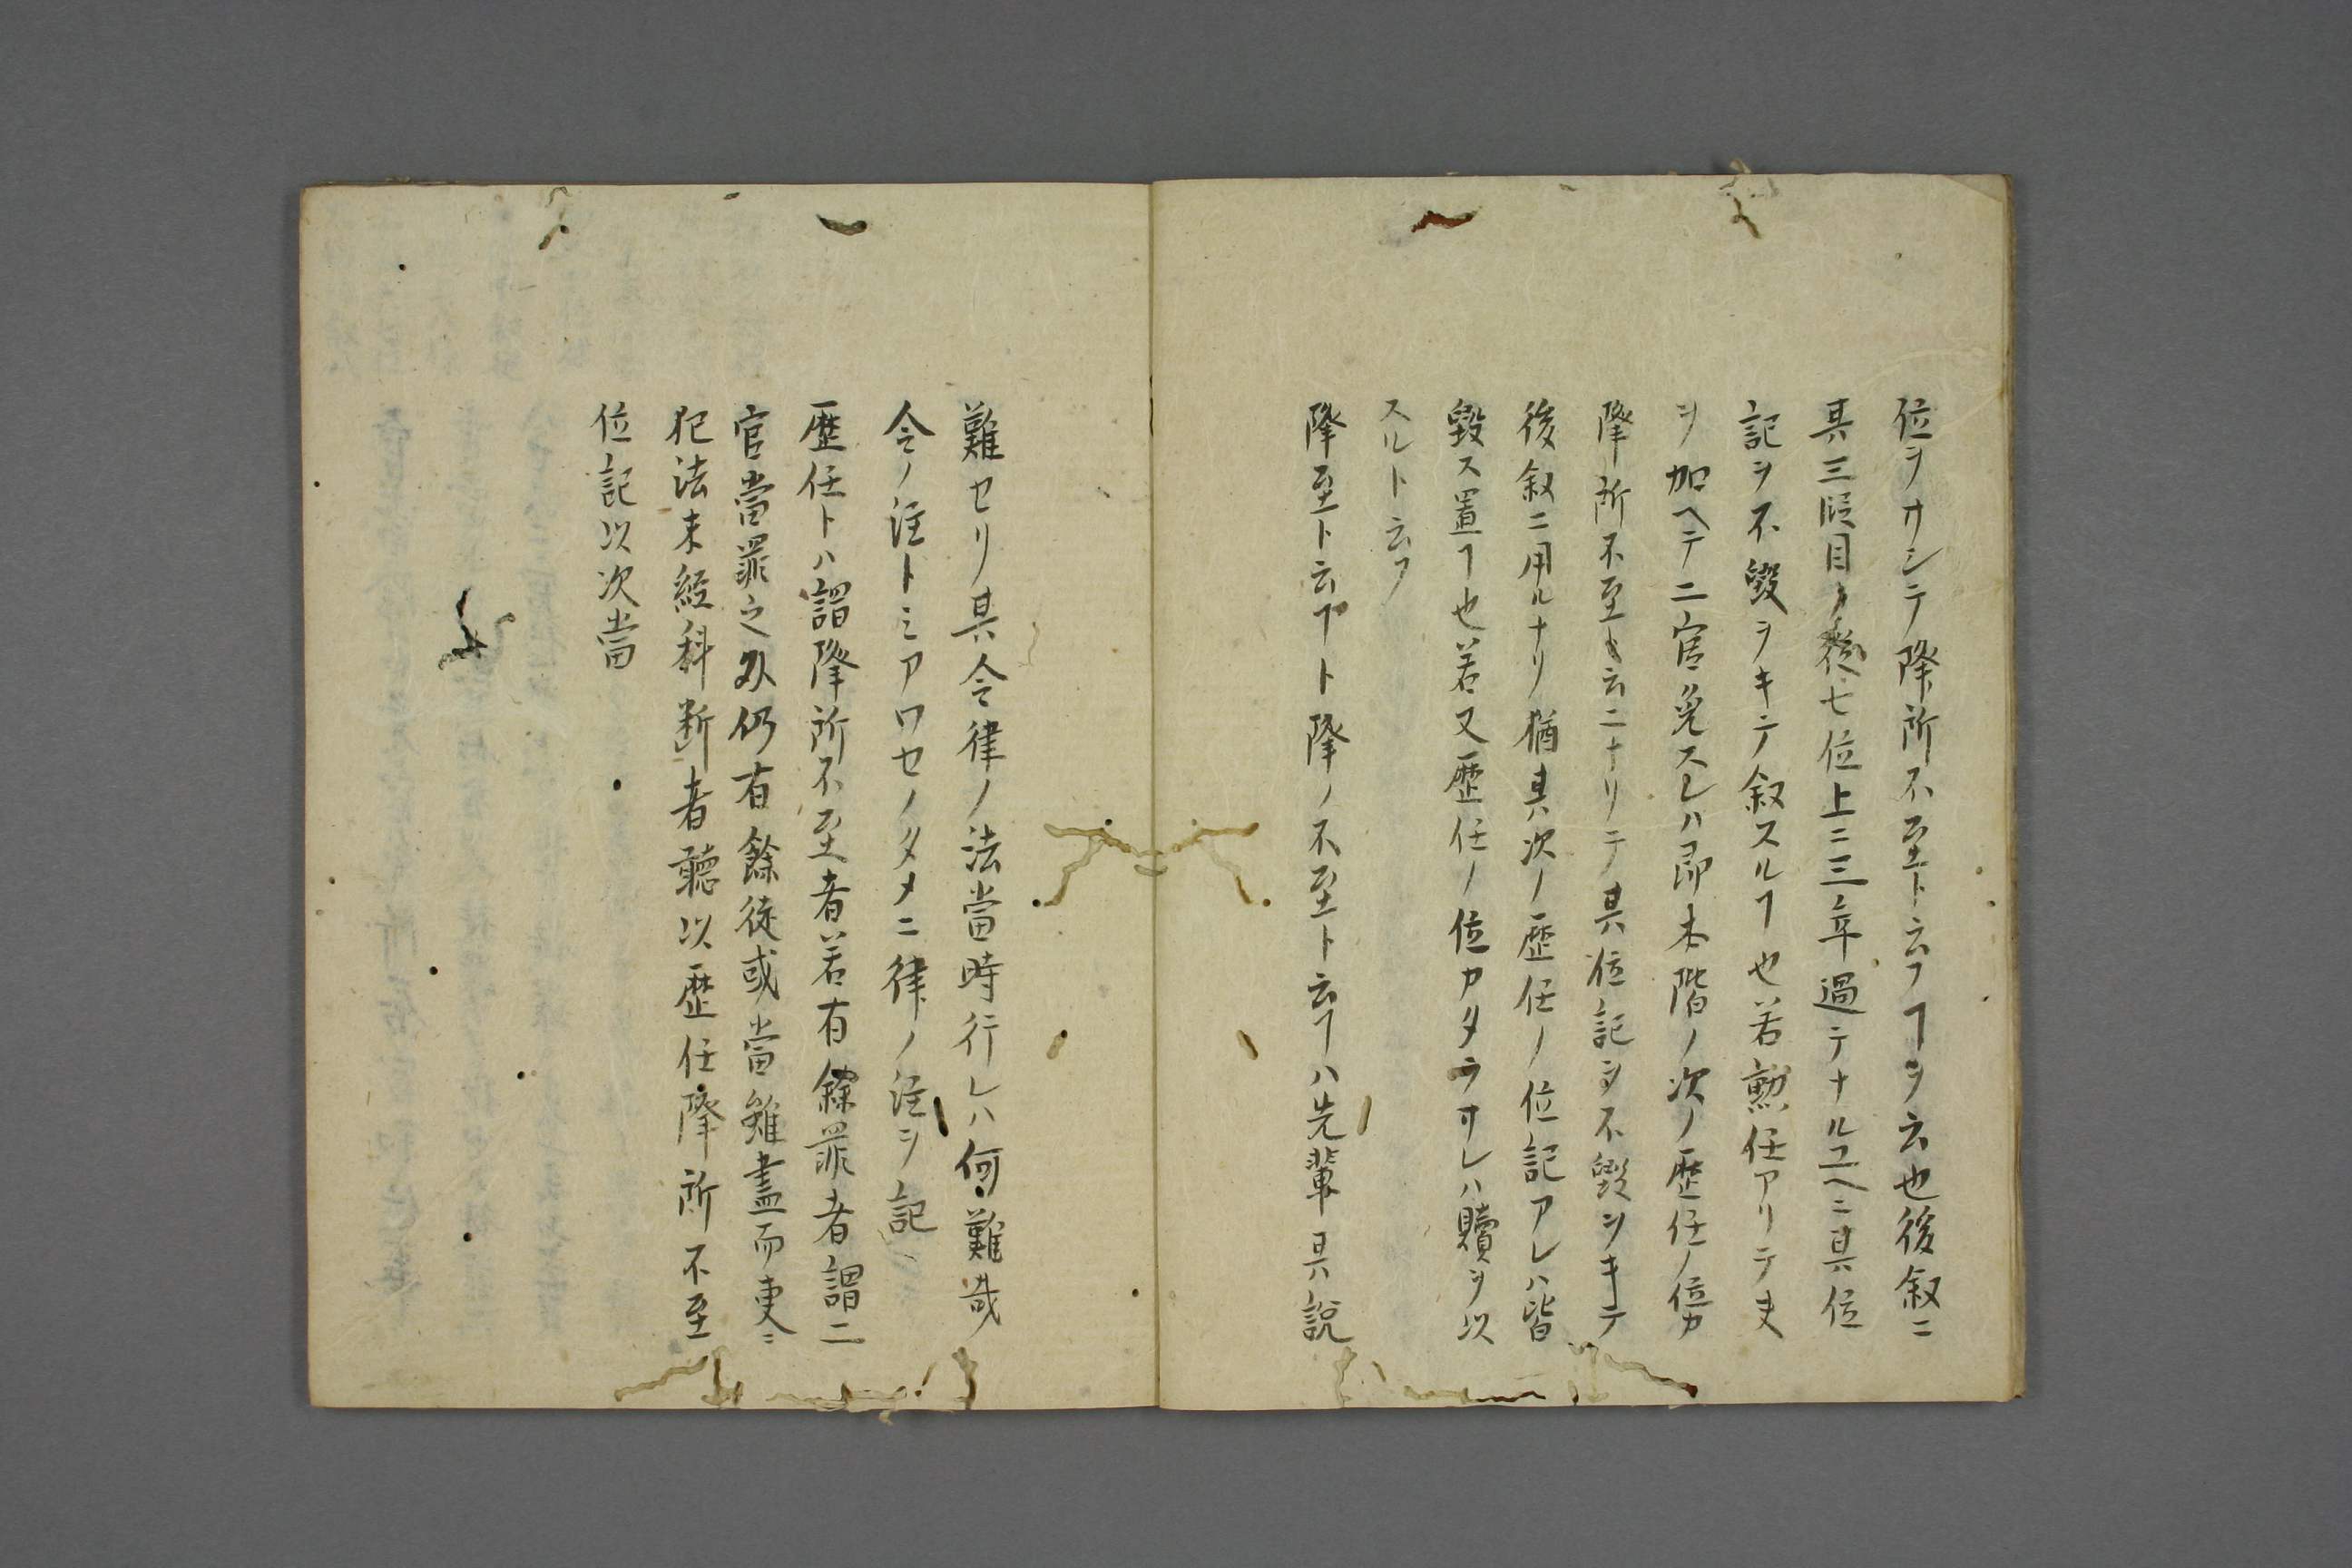 位ヲサシテ降所不至ト云フヿヲ云也後叙ニ
其三階目ノ後七位上ニ三年過テナルユヘニ其位
記ヲ不毀ヲキテ叙スルヿ也若勲任アリテ夫
ヲ加ヘテ二官免スレハ即本階ノ次ノ歴任ノ位カ
降所不至ト云ニナリテ其位記ヲ不毀ヲキテ
後叙ニ用ルナリ猶其次ノ歴任ノ位記アレハ皆
毀ス置ヿ也若又歴任ノ位カタラサレハ贖ヲ以
スルト云フ
降至ト云ヿト降ノ不至ト云ヿハ先輩其説
難セリ其令律ノ法當時行レハ何難哉
令ノ注トミアワセノタメニ律ノ注ヲ記
歴任トハ謂降所不至者若有餘罪者謂二
官當罪之外仍有餘徒或當雖盡而更
犯法未經科断者聽以歴任降所不至
位記以次當